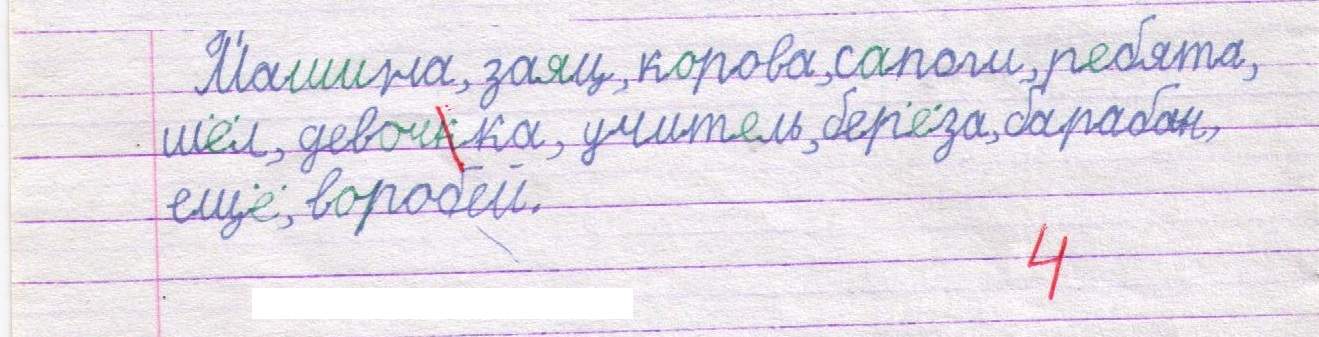 Машина, заяц, корова, сапоги, ребята,
шёл, девочкка, учитель, берёза, барабан,
ещё, воробей.
4